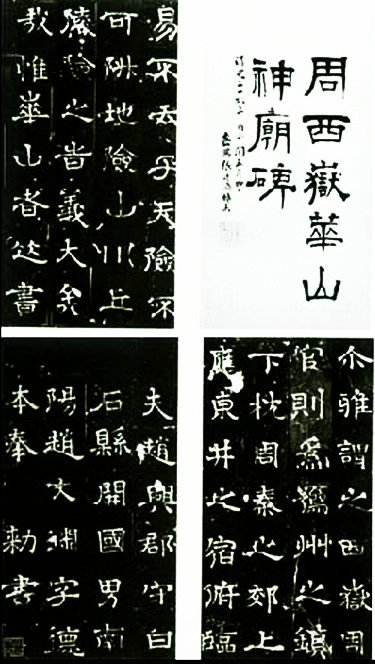 周西嶽華山
神廟碑
易不云乎天險不
可阩地險山川丘
陵險之旹義大矣
哉惟華山者書
尒雅謂之西嶽周
官則為豫州之鎮
下枕周秦之郊上
應東井之宿俯臨
夫趙興郡守白
石縣開國男南
陽趙文淵字德
本奉 勑書